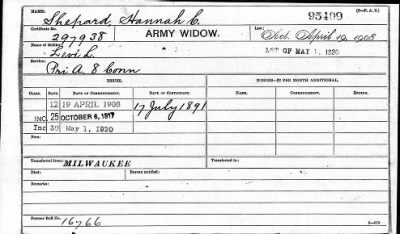 NAME: Shepard, Hannah C. 95409
Certificate No. 297938 ARMY WIDOW. Law: Act April 19, 1908
Name of Soldier: Levi L. ACT OF MAY 1, 1920
Service: Pri A. 8 Conn
ISSUE. MINOR—$2 PER MONTH ADDITIONAL.
CLASS. RATE. DATE OF COMMENCEMENT. DATE OF CERTIFICATE. COMMENCEMENT. DATE OF CERTIFICATE.
12 19 APRIL 1908 17 July 1891
INC. 25 OCTOBER 6, 1917
Inc 30 May 1, 1920
Fees:
Transferred from MILWAUKEE Transferred to:
Died: Bureau notified:
Remarks:
Former Roll No. 16766